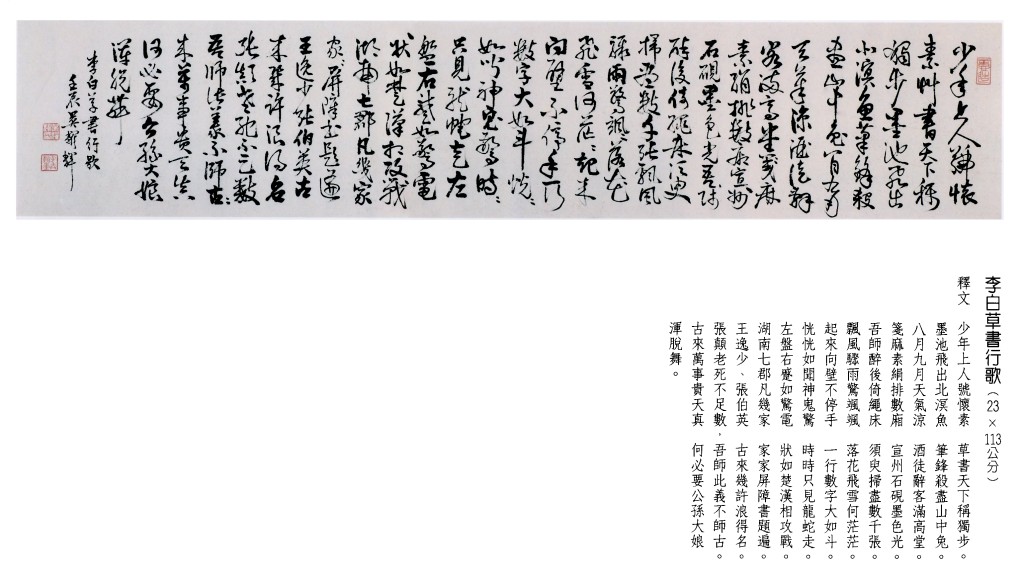 少年上人號懷
素草書天下稱
獨步墨池飛出
北溟魚筆鋒殺
盡山中兔八月九月
天氣涼酒徒辭
客滿高堂箋麻
素絹排數廂宣州
石硯墨色光吾師
醉後倚繩床須臾
掃盡數千張飄風
驟雨驚颯颯落花
飛雪何茫茫起來
向壁不停手一行
數字大如斗恍恍
如聞神鬼驚時時
只見龍蛇走左
盤右蹙如驚電
狀如楚漢相攻戰
湖南七郡凡幾家
家屏障書題遍
王逸少張伯英古
來幾許浪得名
張顛老死不足數
吾師此義不師古古
來萬事貴天真
何必要公孫大娘
渾脫舞
李白草書行歌
壬辰
李白草書行歌(23×113公分)
釋文 少年上人號懷素 草書天下稱獨步。
墨池飛出北溟魚 筆鋒殺盡山中兔。
八月九月天氣涼 酒徒辭客滿高堂。
箋麻素絹排數廂 宣州石硯墨色光。
吾師醉後倚繩床 須臾掃盡數千張。
飄風驟雨驚颯颯 落花飛雪何茫茫。
起來向壁不停手 一行數字大如斗。
恍恍如聞神鬼驚 時時只見龍蛇走。
左盤右蹙如驚電 狀如楚漢相攻戰。
湖南七郡凡幾家 家家屏障書題遍。
王逸少、張伯英 古來幾許浪得名。
張顛老死不足數, 吾師此義不師古。
古來萬事貴天真 何必要公孫大娘
渾脫舞。